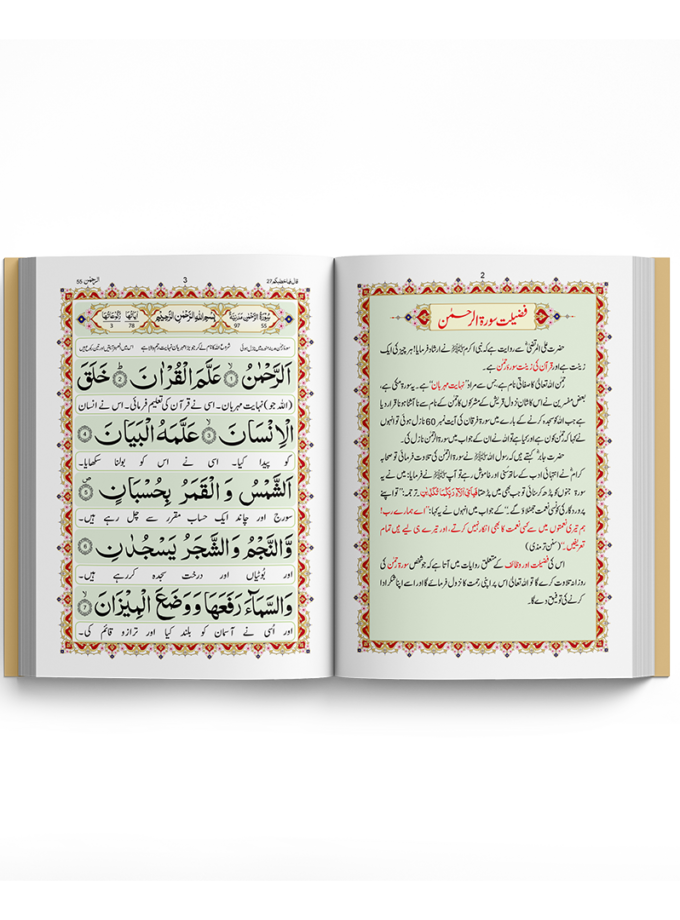 2
فضیلت سورۃ الرحمٰن
حضرت علی المرتضیٰؓ سے روایت ہے کہ نبی اکرم ﷺ نے ارشاد فرمایا! ہر چیز کی ایک
زینت ہے اور قرآن کی زینت سورۃ رحمٰن ہے۔
رحمٰن اللہ تعالیٰ کا صفاتی نام ہے، جس سے مراد "نہایت مہربان" ہے۔ یہ سورۃ مکی ہے،
بعض مفسرین نے اس کا شان نزول قریش کے مشرکوں کا رحمٰن کے نام سے نا آشنا ہونا قرار دیا
ہے جب اللہ کو سجدہ کرنے کے بارے میں سورۃ فرقان کی آیت نمبر 60 نازل ہوئی تو انہوں
نے کہا کہ رحمٰن کون ہے اور کیا ہے تو اللہ نے ان کے جواب میں سورۃ الرحمٰن نازل کی۔
حضرت جابرؓ کہتے ہیں کہ رسول اللہ ﷺ نے سورۃ الرحمٰن کی تلاوت فرمائی تو صحابہ
کرامؓ نے انتہائی ادب کے ساتھ سنی اور خاموش رہے تو آپ ﷺ نے فرمایا: میں نے یہ
سورۃ جنوں کو پڑھ کر سنائی تو جب بھی میں پڑھتا فَبِاَیِّ اٰلَآءِ رَبِّکُمَا تُکَذِّبٰنِ۔ ترجمہ: "تو اپنے
پروردگار کی کونسی نعمت جھٹلاؤ گے۔" کے جواب میں انہوں نے یہ کہا: "اے ہمارے رب!
ہم تیری نعمتوں میں سے کسی نعمت کا بھی انکار نہیں کرتے، اور تیرے ہی لیے ہیں تمام
تعریفیں۔" (سنن ترمذی)
اس کی فضیلت اور وظائف کے متعلق روایات میں آتا ہے کہ جو شخص سورۃ رحمٰن کی
روزانہ تلاوت کرے گا تو اللہ تعالیٰ اس پر اپنی رحمت کا نزول فرمائے گا اور اسے اپنا شکر ادا
کرنے کی توفیق دے گا۔
الرحمٰن 55 3 قال فما خطبکم 27
سُوْرَۃُ الرَّحْمٰنِ مَدَنِیَّۃٌ 55 97 بِسْمِ اللّٰہِ الرَّحْمٰنِ الرَّحِیْمِ اٰیَاتُهَا 78 رُکُوْعَاتُهَا 3
اَلرَّحْمٰنُ ۙ۱ عَلَّمَ الْقُرْاٰنَ ؕ۲ خَلَقَ
(اللہ جو) نہایت مہربان۔ اسی نے قرآن کی تعلیم فرمائی۔ اس نے انسان
الْاِنْسَانَ ۙ۳ عَلَّمَهُ الْبَیَانَ ۴
کو پیدا کیا۔ اسی نے اس کو بولنا سکھایا۔
اَلشَّمْسُ وَ الْقَمَرُ بِحُسْبَانٍ ۪۵
سورج اور چاند ایک حساب مقرر سے چل رہے ہیں۔
وَّ النَّجْمُ وَ الشَّجَرُ یَسْجُدٰنِ ۶
اور بُوٹیاں اور درخت سجدہ کررہے ہیں۔
وَ السَّمَآءَ رَفَعَهَا وَ وَضَعَ الْمِیْزَانَ ۙ۷
اور اُسی نے آسمان کو بلند کیا اور ترازو قائم کی۔